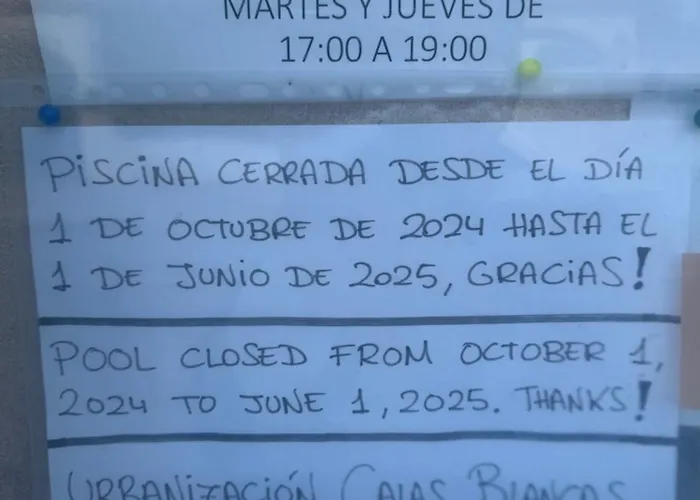 MARTES Y JUEVES DE
17:00 A 19:00
PISCINA CERRADA DESDE EL DÍA
1 DE OCTUBRE DE 2024 HASTA EL
1 DE JUNIO DE 2025, GRACIAS!
POOL CLOSED FROM OCTOBER 1,
2024 TO JUNE 1, 2025. THANKS!
URBANIZACIÓN CALAS BLANCAS